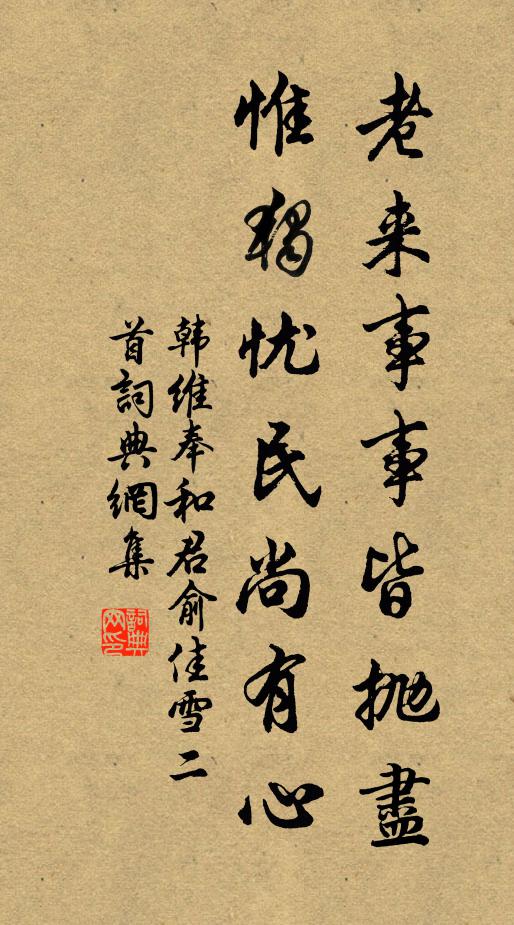 老来事事皆抛盡
惟獨忧民尚有心
韩維奉和君俞佳雪二
首詞典網集
詞典网印